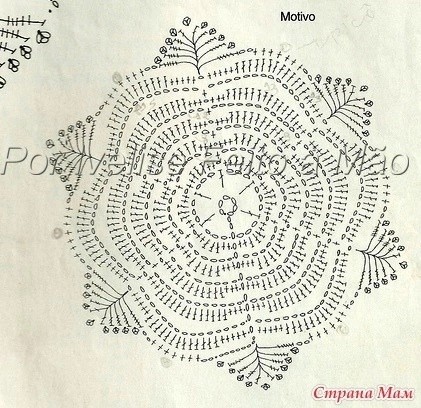 Motivo
Por Ivelise Feito à Mão
Страна Мам